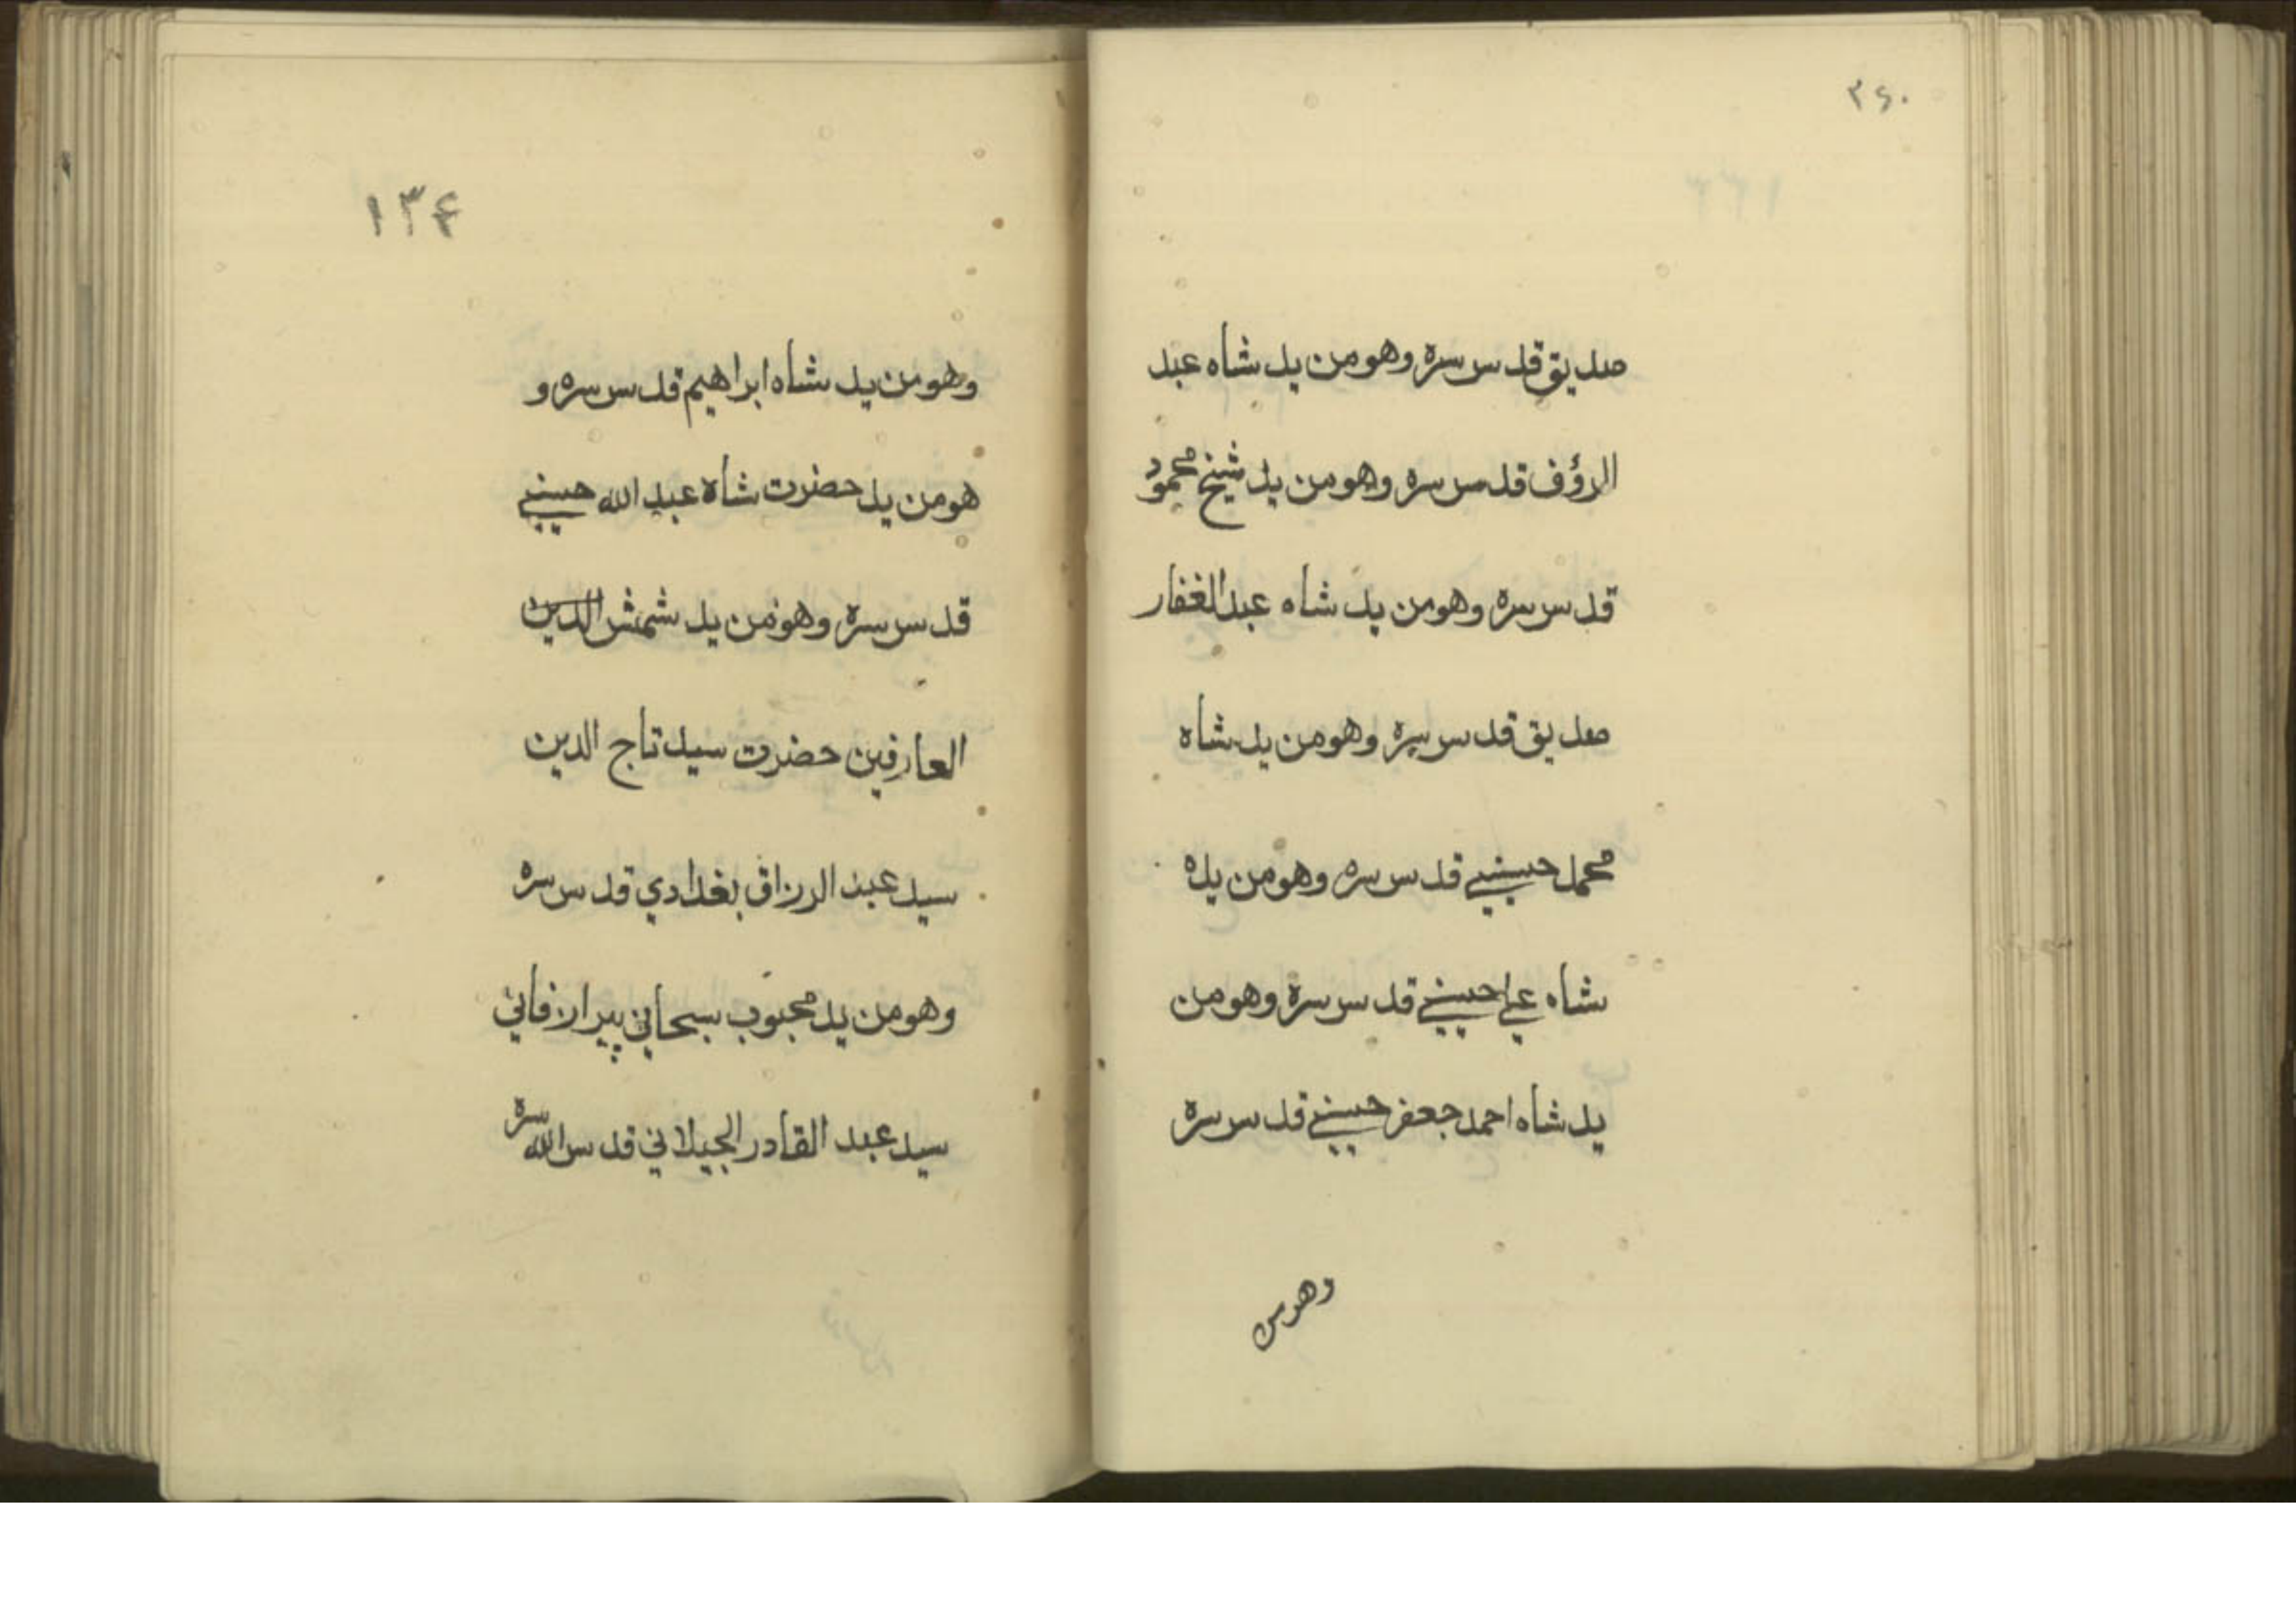 ۲۶۰
صديق قدس سره وهو من يد شاه عبد
الرؤف قدس سره وهو من يد شيخ محمود
قدس سره وهو من يد شاه عبد الغفار
صديق قدس سره وهو من يد شاه
محمد حسيني قدس سره وهو من يده
شاه علي حسيني قدس سره وهو من
يد شاه احمد جعفر حسيني قدس سره
وهو من
۱۳۴
وهو من يد شاه ابراهيم قدس سره و
هو من يد حضرت شاه عبد الله حسيني
قدس سره وهو من يد شمش الدين
العارفين حضرت سيد تاج الدين
سيد عبد الرزاق بغدادي قدس سره
وهو من يد محبوب سبحاني پير ارفاني
سيد عبد القادر الجيلاني قدس الله سره